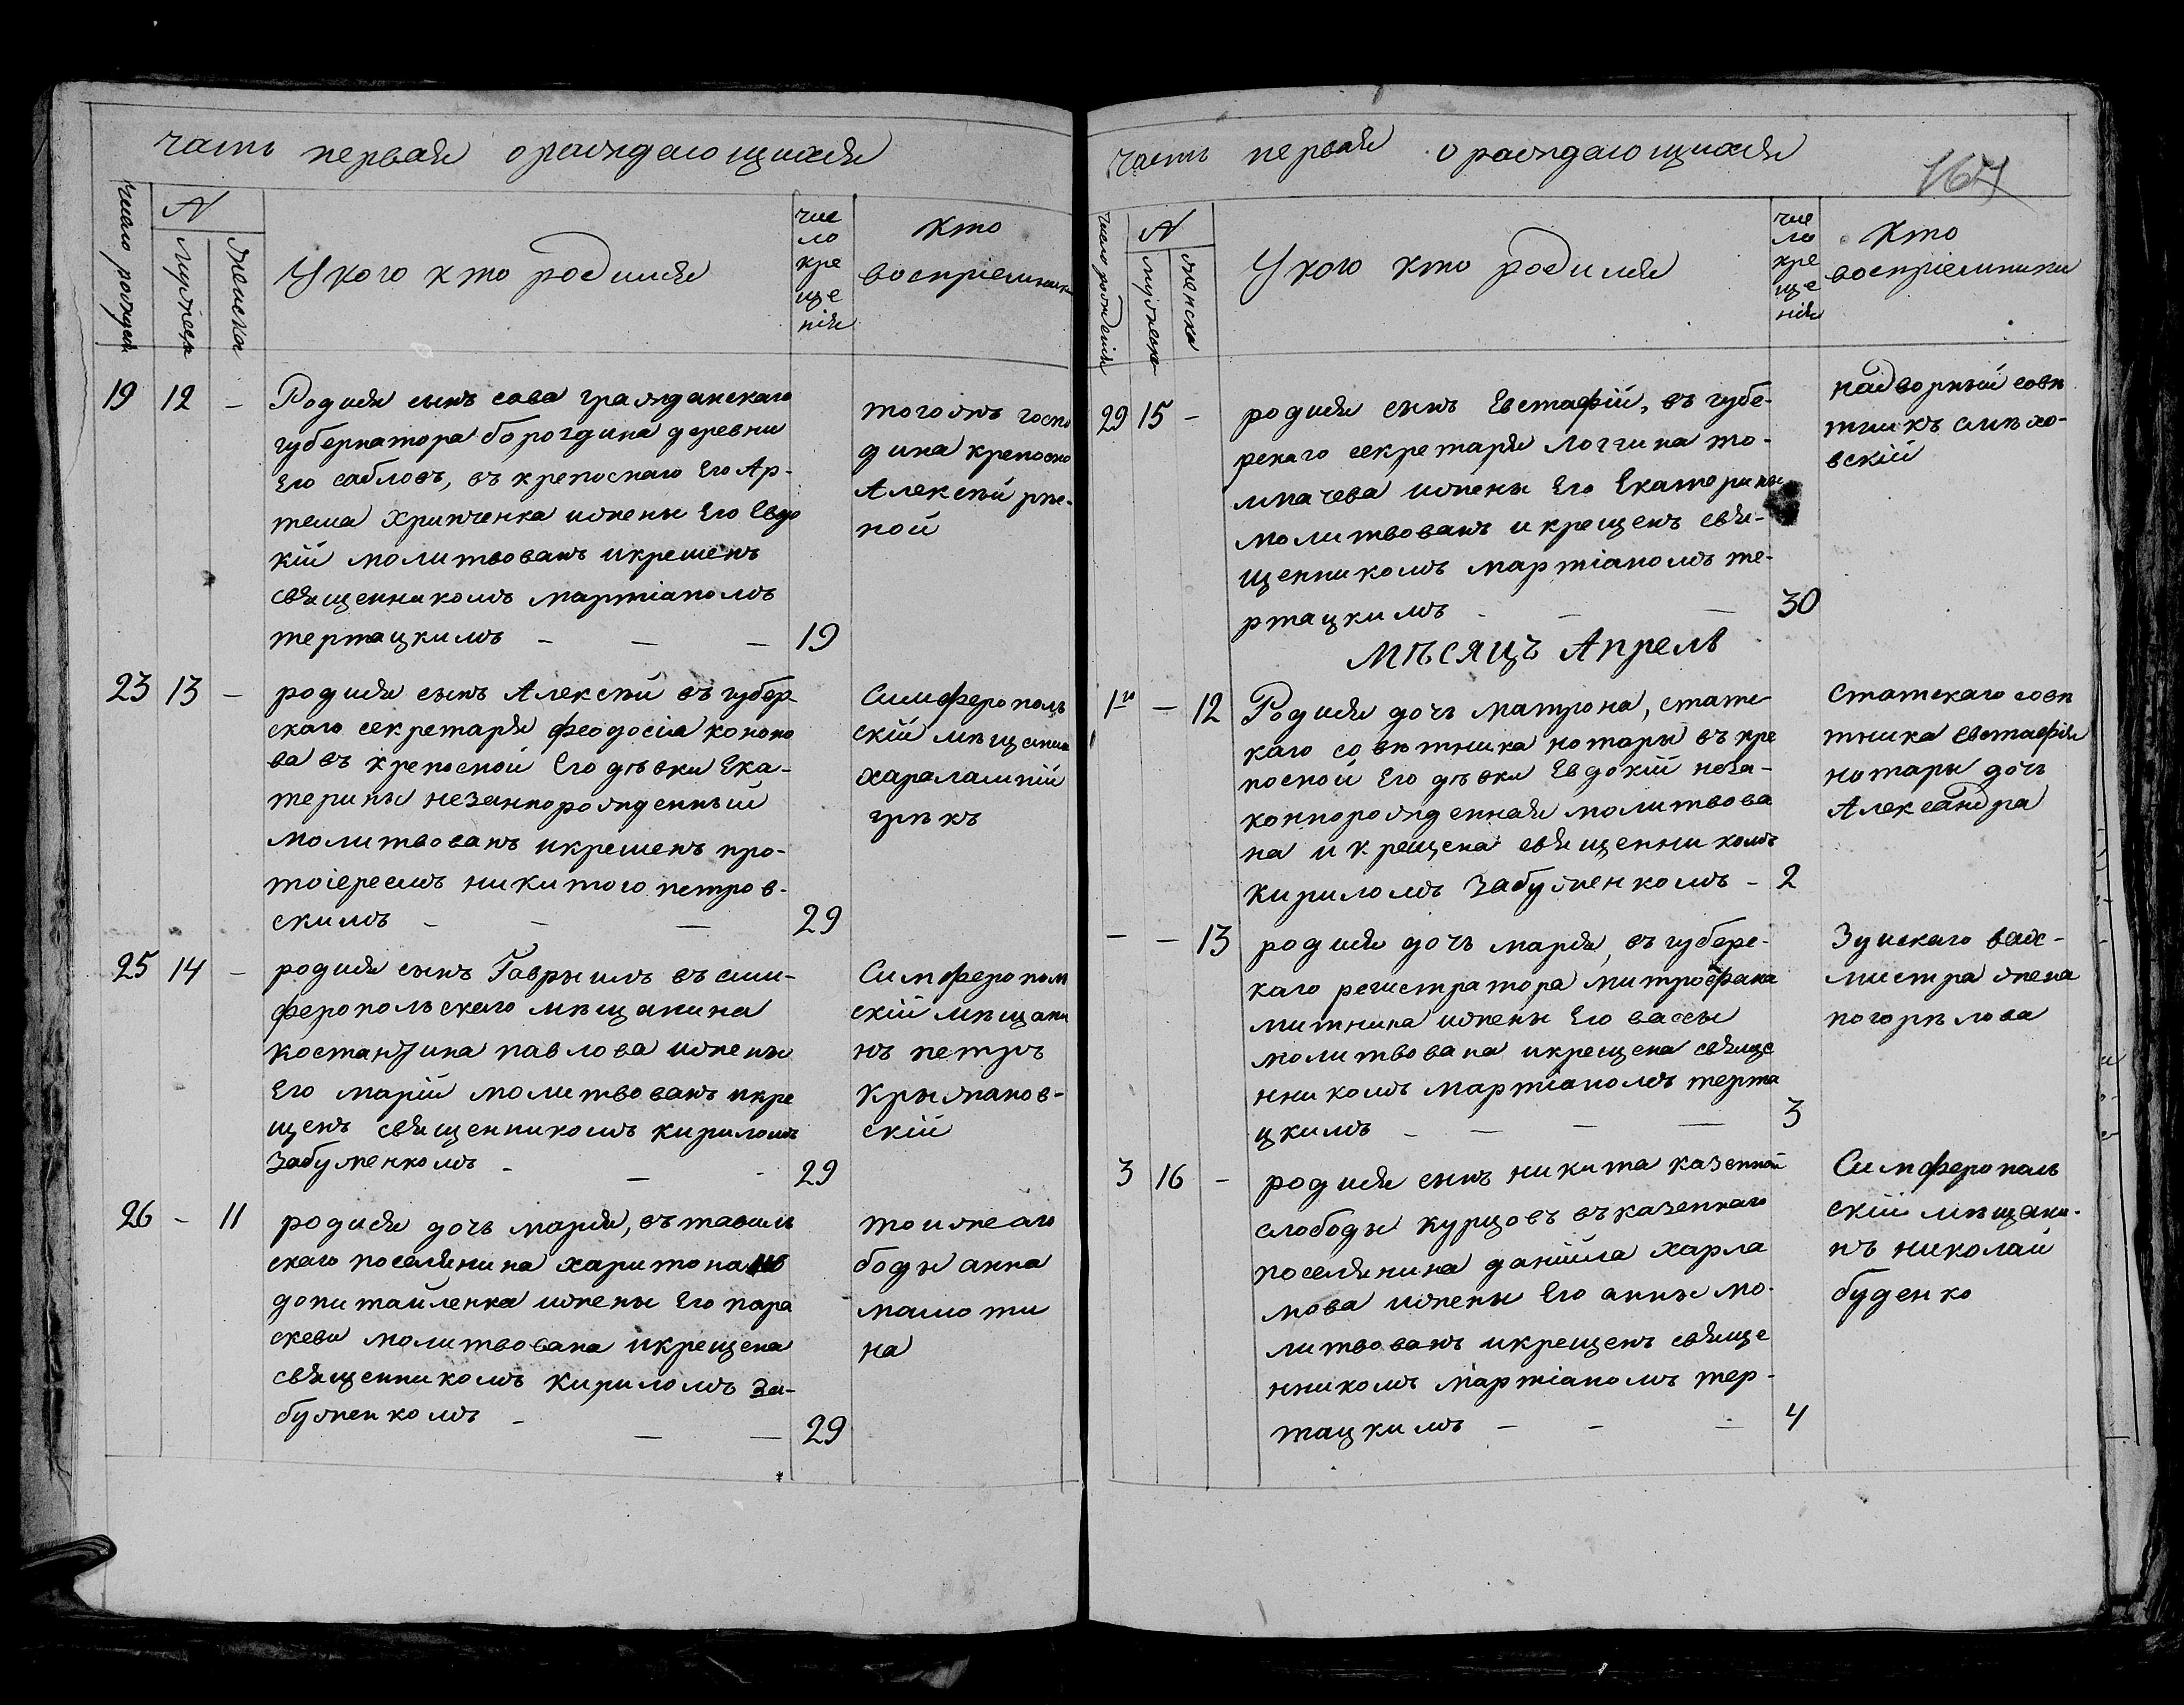 часть первая о раждающихся
число рожденія
N
мужеска
женска
У кого кто родился
чис
ло
кре
ще
нія
кто
воспріемники
19 12 –
Родился сынъ сава гражданскаго
губернатора бороздина деревни
Его сабловъ, въ крепоснаго Его Ар-
тема Хрипченка ижены Его Евдо
кіи молитвованъ икрешенъ
священникомъ мартіаномъ
тертацкимъ – – – 19
тогожъ госпо
дина крепосно
Алексѣй рѣе-
ной
23 13 –
родился сынъ Алексѣй въ губер-
скаго секретаря феодосіякононо
ва въ крепосной Его дѣвки Ека-
терины незаннорожденный
молитвованъ икрешенъ про-
тоіереемъ никитою петров-
скимъ – – – 29
Симферополь
скій мѣщанин
харалампій
грѣкъ
25 14 –
родился сынъ Гаврыилъ въ сим-
феропольскаго мѣщанина
костантина павлова ижены
Его маріи молитвованъ икре
щенъ священникомъ кириломъ
Забуженкомъ – – - 29
Симферопол
скій мѣщани
нъ петръ
Крыжанов-
скій
26 – 11
родися дочь марія, въ тавель
скаго поселянина харитона
допитайленка ижены Его пара
скеви молитвована икрещена
священникомъ Кириломъ За-
буженкомъ – – – 29
тоижесло
боды анна
малюти
на
часть первая о раждающихся
164
число рожденія
N
мужеска
женска
У кого кто родился
чис
ло
кре
ще
нія
кто
воспріемники
29 15 –
родился сынъ Евстафій, въ губе-
рскаго секретаря логгина то-
лмачева ижены Его Екатерины
молитвованъ и крещенъ свя-
щенникомъ мартіаномъ те-
ртацкимъ – – – 30
надворный совѣ
тникъ
вскій
МѢСЯЦЪ Апрель
1го – 12
Родился дочь матрона, статс
каго совѣтника нотары въ кре
посной Его дѣвки Евдокіи неза-
коннорожденная молитвова
на и крещена священникомъ
Кириломъ Забуженкомъ – 2
статскаго совѣ
тника евстафія
нотары дочь
Александра
– – 13
родился дочь марія, въ губерс-
каго регистратора митрофана
митнина ижены Его вассы
молитвована икрещена свяще
нникомъ мартіаномъ терта
цкимъ – – – – 3
Зуискаго вах-
мистра жена
погорѣлова
3 16 –
родился сынъ никита казенной
слободы курцовъ въ казеннаго
поселянина даніила харла
мова ижены Его анны мо-
литвованъ икрещенъ свяще
нникомъ мартіаномъ тер-
тацкимъ – – – 4
Симферополь
скій мѣщани-
нъ николай
буденко